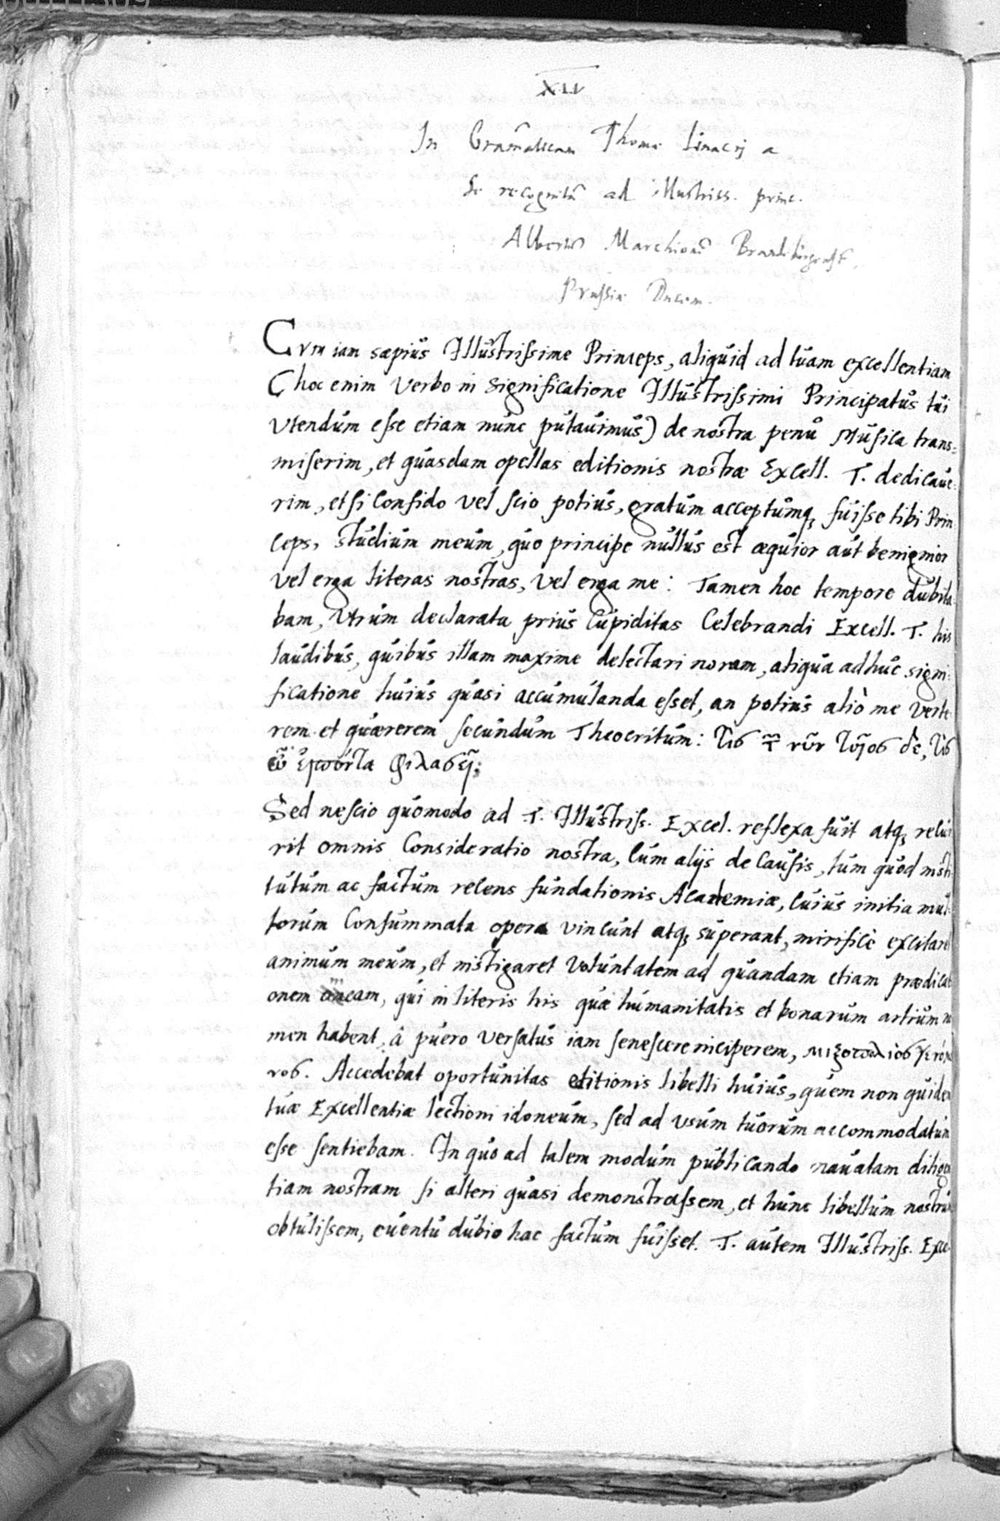 XIV
In Gram̃aticam Thome Linacrj a
se recognitã ad illustriss. princ.
Albertũ Marchionẽ Brandeburgensẽ.
Prussiæ Ducem.
Cum iam sæpius Illustrissime Princeps, aliquid ad tuam excellentiam
(hoc enim verbo in significatione Illustrissimi Principatus tui
vtendum esse etiam nunc putauimus) de nostra penu Musica trans=
miserim, et quasdam opellas editionis nostræ Excell. T. dedicaue=
rim, etsi confido vel scio potius, gratum acceptumq; fuisse tibi Prin
ceps, studium meum, quo principe nullus est æquior aut benignior
vel erga literas nostras, vel erga me: Tamen hoc tempore dubita
bam, vtrum declarata prius cupiditas Celebrandi Excell. T. his
laudibus, quibus illam maxime delectari noram, aliqua adhuc signi=
ficatione huius quasi accumulanda esset, an potius aliò me verte
rem et quærerem secundum Theocritum: τίς
φιλασῇ;
Sed nescio quomodo ad T. Illustriss. Excel. reflexa fuit atq; relui
rit omnis Consideratio nostra, cum alijs de causis, tum quod insti
tutum ac factum recens fundationis Academiæ, cuius initia mul=
torum Consummata opera vincunt atq; superant, mirificè excitaret
animum meum, et instigaret voluntatem ad quandam etiam prædicati
onem eam, qui in literis his quæ humanitatis et bonarum artium no
men habent, â puero versatus iam senescere inciperem, μιξοπόλιος γενόμε
νος. Accedebat oportunitas editionis libelli huius, quem non quidem
tuæ Excellentiæ lectioni idoneum, sed ad vsum tuorum accommodatum
esse sentiebam. In quo ad talem modum publicando nauatam diligen
tiam nostram si alteri quasi demonstrassem, et hunc libellum nostrum
obtulissem, euentu dubio hac factum fuisset. T. autem Illustriss. Exce